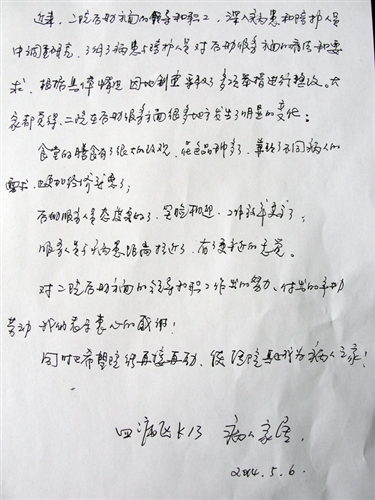 近来,二院后勤方面的领导和职工,深入病患和陪护人员
中调查研究,了解了病患与陪护人员对后勤服务方面的情况和要
求,根据具体情况因地制宜采取了多项举措进行整改。大
家都觉得,二院在后勤服务方面很多地方发生了明显的变化:
食堂的膳食有了很大的改观,花色品种多了,兼顾了不同病人的
需求,更加经济实惠了;
后勤服务人员态度变好了,工作效率变高了;
服务人员与病患距离拉近了,有了变近的感觉。
对二院后勤方面的领导和职工作出的努力、付出的辛勤
劳动,我们表示衷心的感谢!
同时也希望院继续再接再励,使医院真正成为病人之家!
四病区K13 病人家属
2014.5.6.